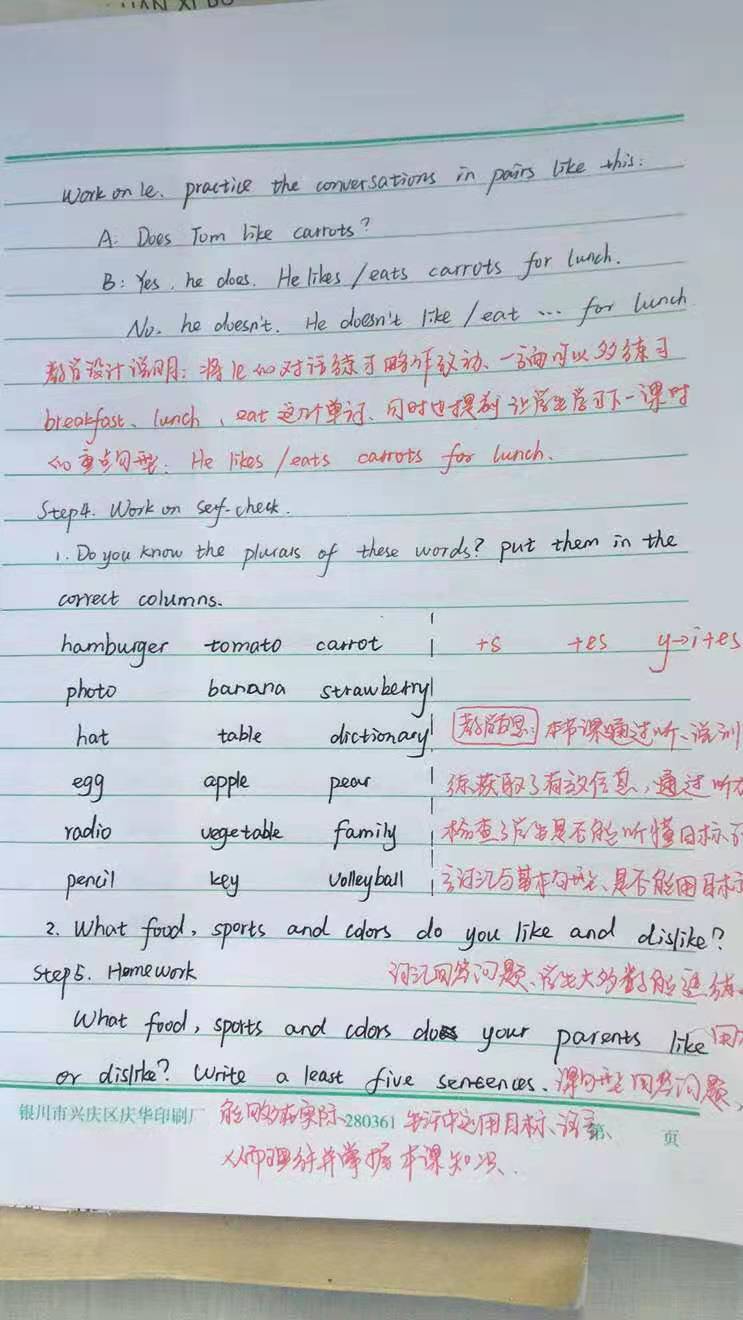 Work on 1e. practice the conversations in pairs like this:
A: Does Tom like carrots?
B: Yes, he does. He likes/eats carrots for lunch.
No, he doesn't. He doesn't like/eat … for lunch
教学设计说明: 将1e的对话练习略作改动、一方面可以多练习
breakfast、lunch、eat这几个单词、同时也提前让学生学习下一课时
的重点句型: He likes/eats carrots for lunch.
Step4. Work on self-check.
1. Do you know the plurals of these words? put them in the
correct columns.
hamburger tomato carrot +s +es y→i+es
photo banana strawberry
hat table dictionary 教学反思: 本节课通过听、说训
egg apple pear 练获取了有效信息, 通过听力
radio vegetable family 检查了学生是否能听懂目标语
pencil key volleyball 言词汇与基本句型、是否能用目标
2. What food, sports and colors do you like and dislike?
Step5. Homework 词汇回答问题、学生大多数能
What food, sports and colors do your parents like 用
or dislike? Write a least five sentences. 课句型回答问题,
银川市兴庆区庆华印刷厂 280361 第 页
能够在实际生活中运用目标语言、
从而理解并掌握本课知识.